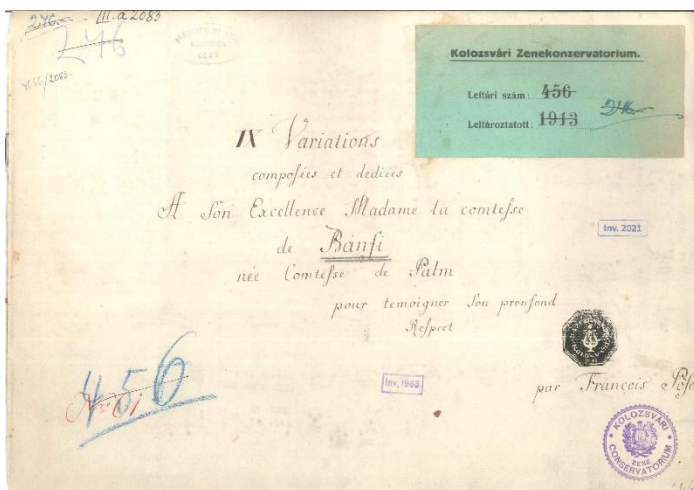 246. III.a 2083
246
Kolozsvári Zenekonzervatorium.
Leltári szám: 456
Leltároztatott: 1913
IX Variations
composées et dediées
A Son Excellence Madame la comtesse
de Bánfi
née Comtesse de Palm
pour temoigner Son pronfond
Respect
Inv. 2021
Inv. 1963
par François
456
KOLOZSVÁRI
ZENE
CONSERVATORIUM